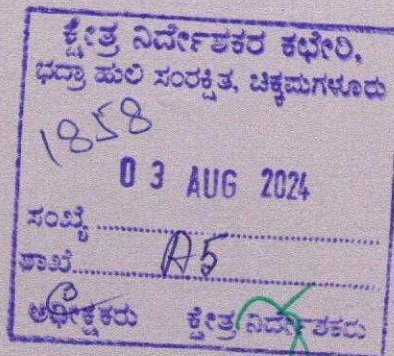 ಕ್ಷೇತ್ರ ನಿರ್ದೇಶಕರ ಕಛೇರಿ,
ಭದ್ರಾ ಹುಲಿ ಸಂರಕ್ಷಿತ, ಚಿಕ್ಕಮಗಳೂರು
1858
03 AUG 2024
ಸಂಖ್ಯೆ
ಶಾಖೆ A5
ಅಧೀಕ್ಷಕರು ಕ್ಷೇತ್ರ ನಿರ್ದೇಶಕರು